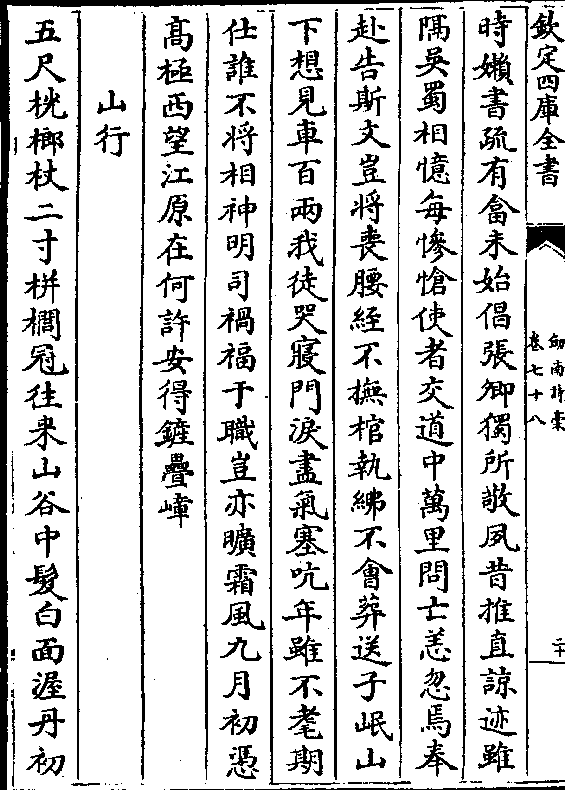 欽定四庫全書
劍南詩稾
卷七十八
二十
時嬾書疏有畣未始倡張卿獨所敬夙昔推直諒迹雖
隔吳蜀相憶每慘愴使者交道中萬里問亡恙忽焉奉
赴告斯文豈將喪腰絰不撫棺執紼不會葬送子岷山
下想見車百兩我徒哭寢門淚盡氣塞吭年雖不耄期
仕誰不將相神明司禍福于職豈亦曠霜風九月初憑
髙極西望江原在何許安得鏟疊嶂
山行
五尺桄榔杖二寸栟櫚冠往来山谷中髮白面渥丹初